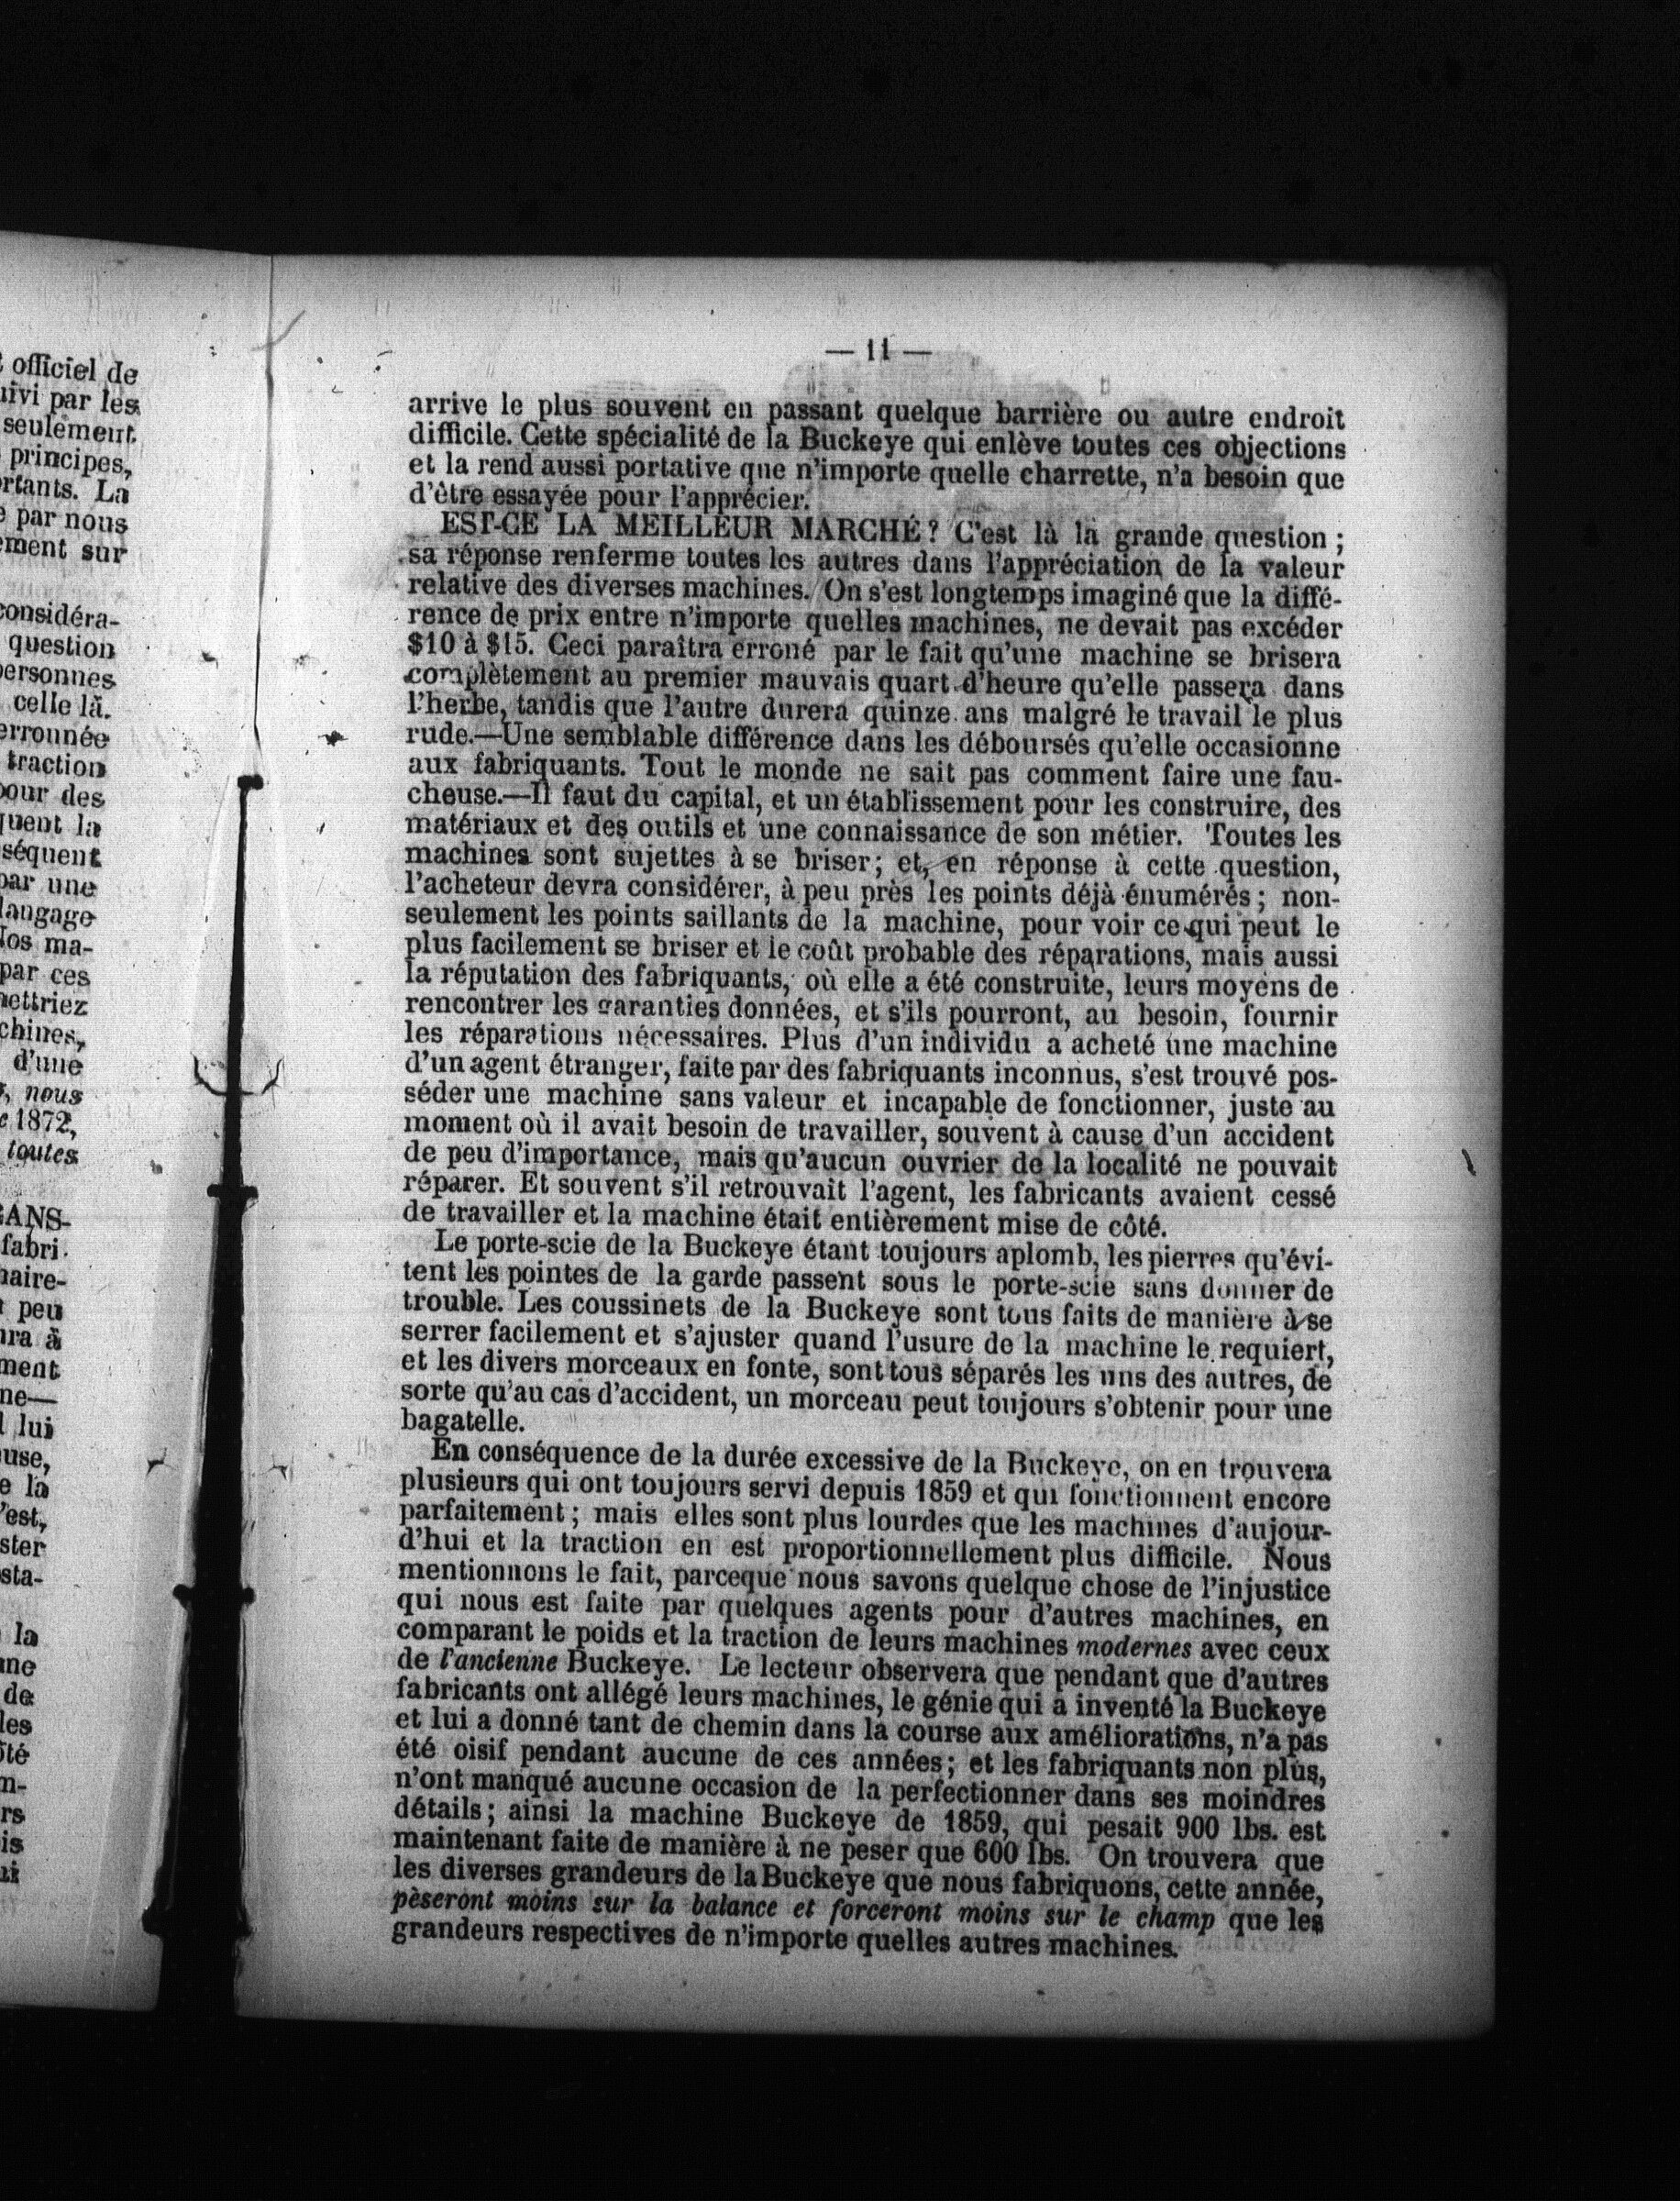 officiel de
ivi par les
seulement
principes,
rtants. La
par nous
ement sur
considéra-
question
personnes
celle là.
erronnée
traction
pour des
quent la
séquent
par une
langage
Nos ma-
par ces
mettriez
chines,
d'une
nous
1872,
toutes
GANS-
fabri-
naire-
peu
ra à
ment
ne—
lui
use,
e la
'est,
ster
sta-
la
ne
de
les
ôté
m-
rs
is
ui
— 11 —
arrive le plus souvent en passant quelque barrière ou autre endroit
difficile. Cette spécialité de la Buckeye qui enlève toutes ces objections
et la rend aussi portative que n'importe quelle charrette, n'a besoin que
d'être essayée pour l'apprécier.
EST-CE LA MEILLEUR MARCHÉ? C'est là la grande question ;
sa réponse renferme toutes les autres dans l'appréciation de la valeur
relative des diverses machines. On s'est longtemps imaginé que la diffé-
rence de prix entre n'importe quelles machines, ne devait pas excéder
$10 à $15. Ceci paraîtra erroné par le fait qu'une machine se brisera
complètement au premier mauvais quart d'heure qu'elle passera dans
l'herbe, tandis que l'autre durera quinze ans malgré le travail le plus
rude.—Une semblable différence dans les déboursés qu'elle occasionne
aux fabriquants. Tout le monde ne sait pas comment faire une fau-
cheuse.—Il faut du capital, et un établissement pour les construire, des
matériaux et des outils et une connaissance de son métier. Toutes les
machines sont sujettes à se briser; et, en réponse à cette question,
l'acheteur devra considérer, à peu près les points déjà énumérés ; non-
seulement les points saillants de la machine, pour voir ce qui peut le
plus facilement se briser et le coût probable des réparations, mais aussi
la réputation des fabriquants, où elle a été construite, leurs moyens de
rencontrer les garanties données, et s'ils pourront, au besoin, fournir
les réparations nécessaires. Plus d'un individu a acheté une machine
d'un agent étranger, faite par des fabriquants inconnus, s'est trouvé pos-
séder une machine sans valeur et incapable de fonctionner, juste au
moment où il avait besoin de travailler, souvent à cause d'un accident
de peu d'importance, mais qu'aucun ouvrier de la localité ne pouvait
réparer. Et souvent s'il retrouvait l'agent, les fabricants avaient cessé
de travailler et la machine était entièrement mise de côté.
Le porte-scie de la Buckeye étant toujours aplomb, les pierres qu'évi-
tent les pointes de la garde passent sous le porte-scie sans donner de
trouble. Les coussinets de la Buckeye sont tous faits de manière à se
serrer facilement et s'ajuster quand l'usure de la machine le requiert,
et les divers morceaux en fonte, sont tous séparés les uns des autres, de
sorte qu'au cas d'accident, un morceau peut toujours s'obtenir pour une
bagatelle.
En conséquence de la durée excessive de la Buckeye, on en trouvera
plusieurs qui ont toujours servi depuis 1859 et qui fonctionnent encore
parfaitement ; mais elles sont plus lourdes que les machines d'aujour-
d'hui et la traction en est proportionnellement plus difficile. Nous
mentionnons le fait, parceque nous savons quelque chose de l'injustice
qui nous est faite par quelques agents pour d'autres machines, en
comparant le poids et la traction de leurs machines modernes avec ceux
de l'ancienne Buckeye. Le lecteur observera que pendant que d'autres
fabricants ont allégé leurs machines, le génie qui a inventé la Buckeye
et lui a donné tant de chemin dans la course aux améliorations, n'a pas
été oisif pendant aucune de ces années; et les fabriquants non plus,
n'ont manqué aucune occasion de la perfectionner dans ses moindres
détails; ainsi la machine Buckeye de 1859, qui pesait 900 lbs. est
maintenant faite de manière à ne peser que 600 lbs. On trouvera que
les diverses grandeurs de la Buckeye que nous fabriquons, cette année,
pèseront moins sur la balance et forceront moins sur le champ que les
grandeurs respectives de n'importe quelles autres machines.